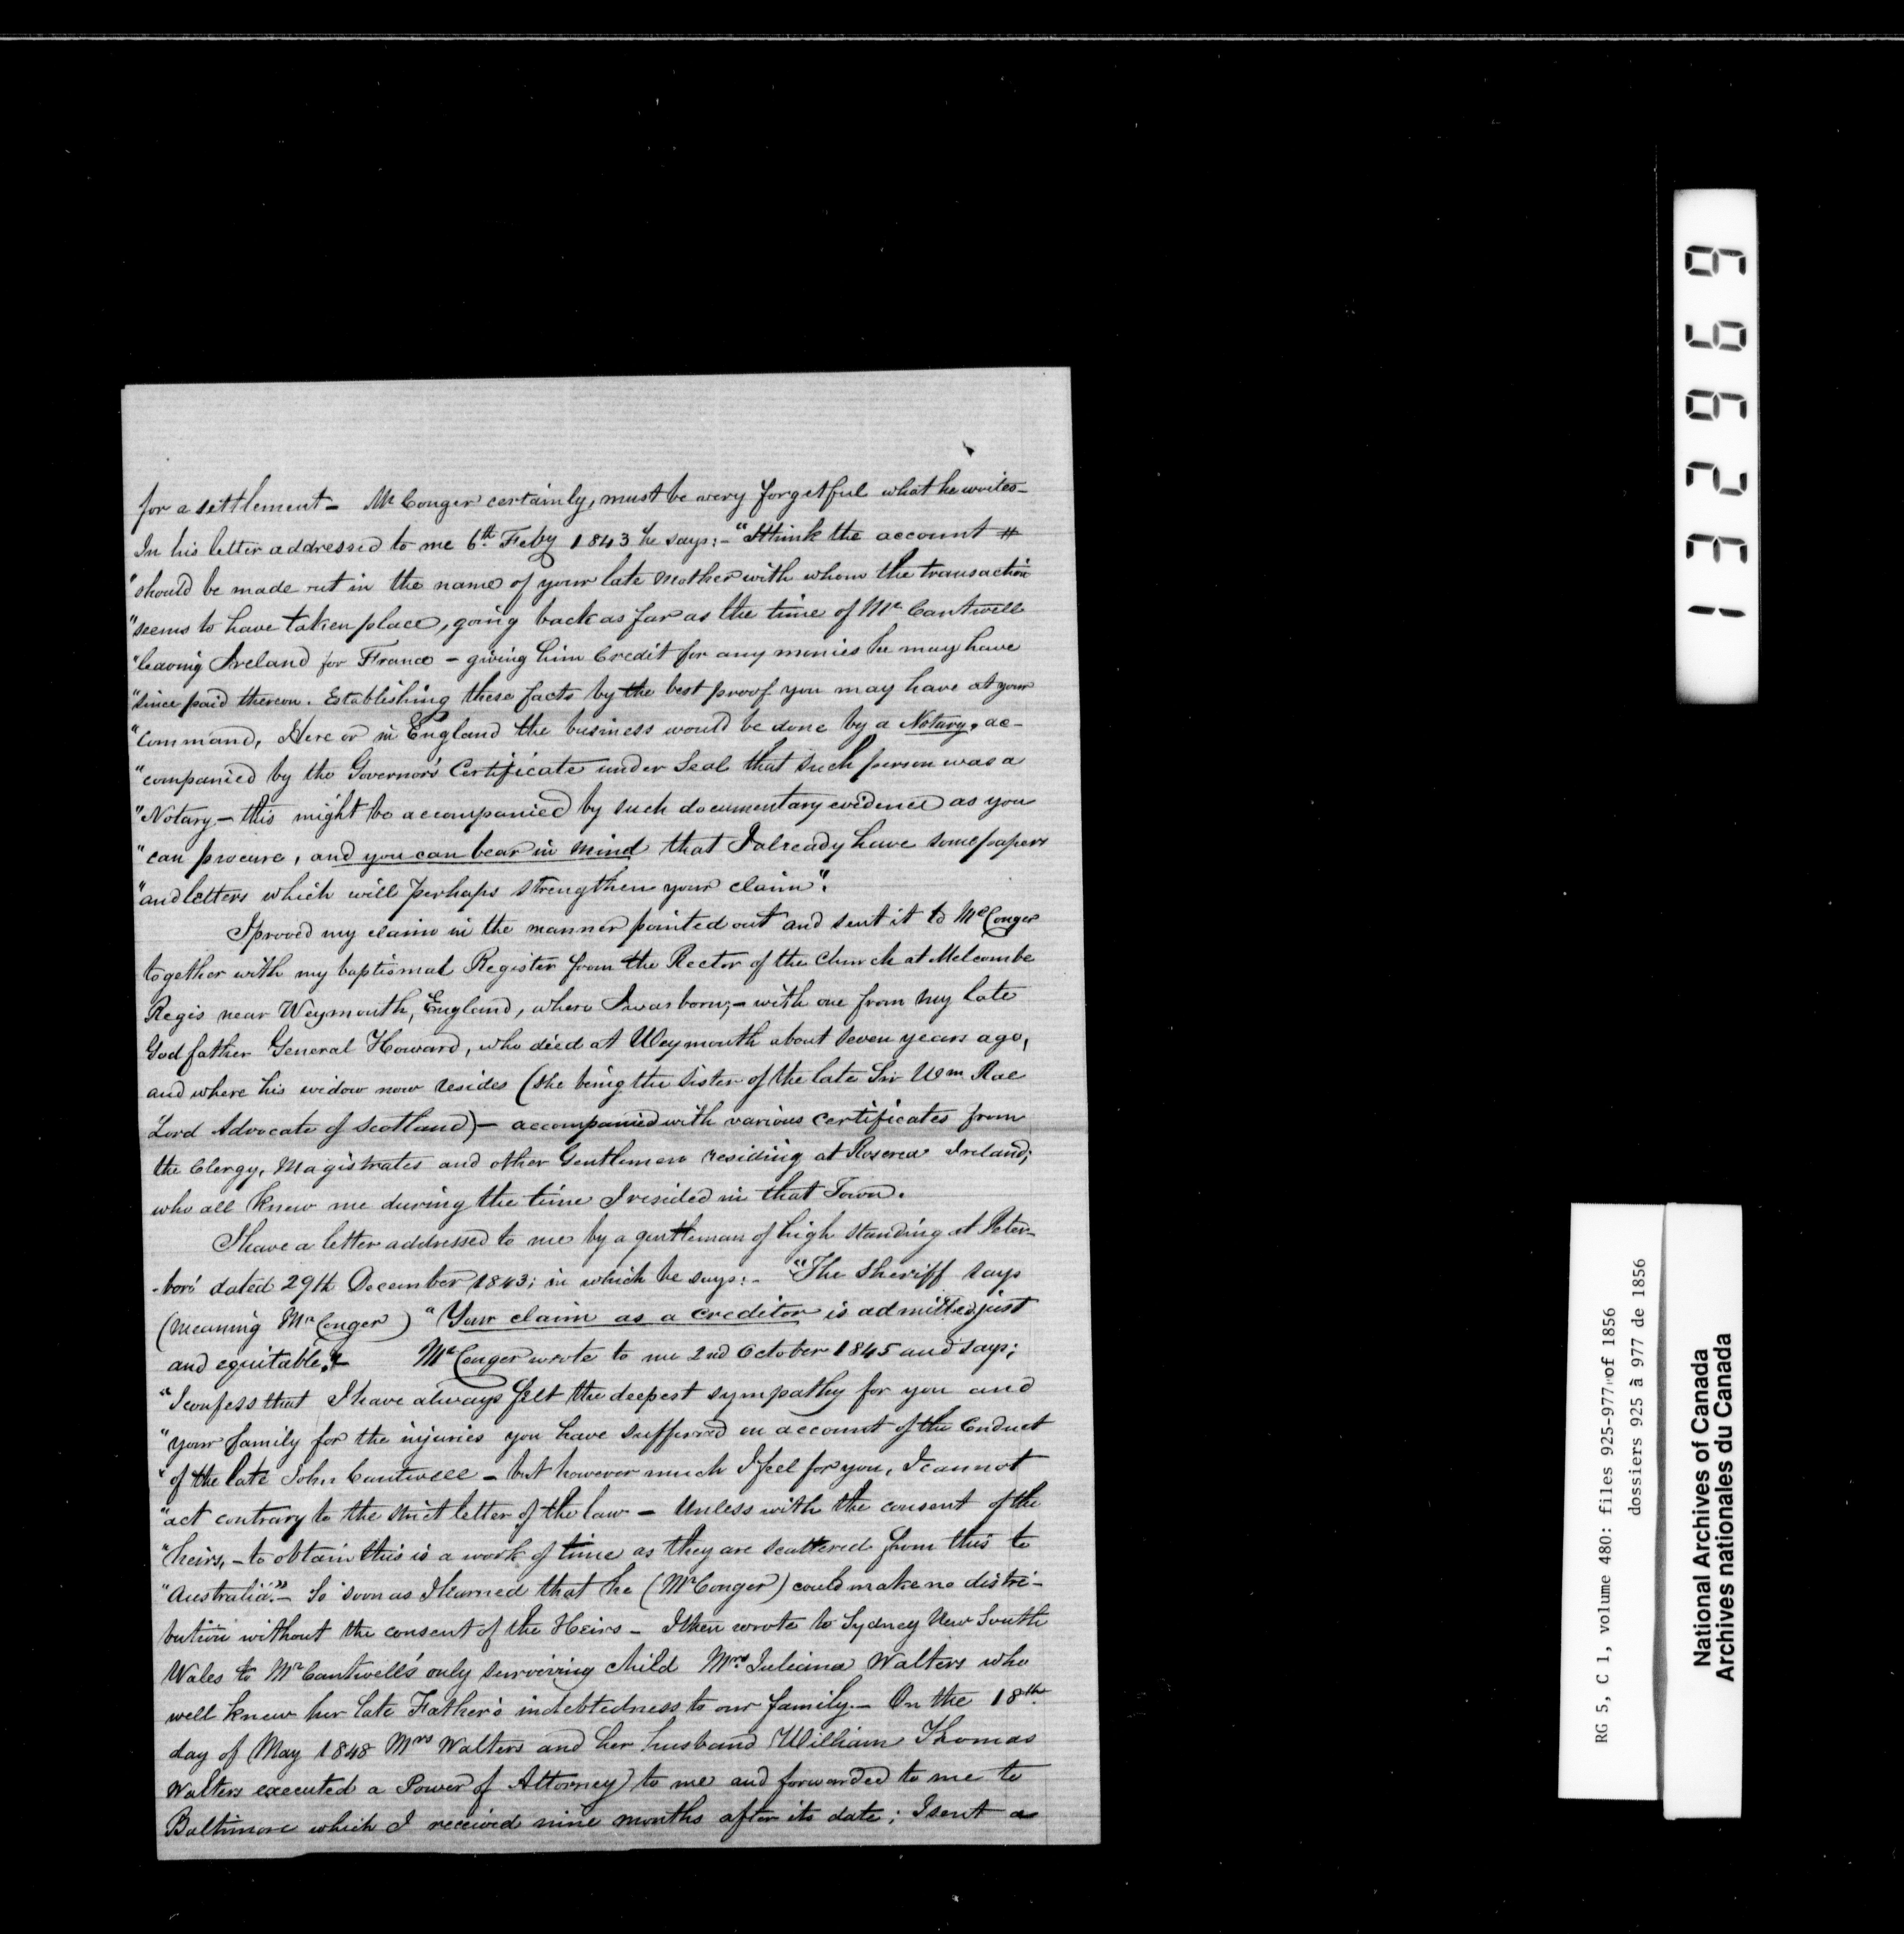 for a settlement - Mr Conger certainly, must be very forgetful what he writes -
In his letter addressed to me 6th Feby 1843 he says: - "I think the account #
"should be made out in the name of your late Mother with whom the transaction
"seems to have taken place, going back as far as the time of Mr Cantwell
"leaving Ireland for France - giving him Credit for any monies he may have
"since paid thereon. Establishing these facts by the best proof you may have at your
"command, Here or in England the business would be done by a Notary, ac-
"companied by the Governor's Certificate under Seal that such person was a
"Notary - this might be accompanied by such documentary evidence as you
"can procure, and you can bear in mind that I already have some papers
"and letters which will perhaps strengthen your claim".
I proved my claim in the manner pointed out and sent it to Mr Conger
together with my baptismal Register from the Rector of the Church at Melcombe
Regis near Weymouth, England, where I was born; - with one from my late
God father General Howard, who died at Weymouth about seven years ago,
and where his widow now resides (she being the sister of the late Sir Wm Rae
Lord Advocate of Scotland) - accompanied with various certificates from
the Clergy, Magistrates and other Gentlemen residing at Roscrea Ireland;
who all knew me during the time I resided in that Town.
I have a letter addressed to me by a gentleman of high standing at Peter-
-boro' dated 29th December 1843; in which he says: - "The Sheriff says
(meaning Mr Conger) "Your claim as a creditor is admitted just
and equitable." - Mr Conger wrote to me 2nd October 1845 and says;
"I confess that I have always felt the deepest sympathy for you and
"your family for the injuries you have suffered on account of the Conduct
"of the late John Cantwell - but however much I feel for you, I cannot
"act contrary to the strict letter of the law - Unless with the consent of the
"heirs, - to obtain this is a work of time as they are scattered from this to
"Australia". - So soon as I learned that he (Mr Conger) could make no distri-
bution without the consent of the Heirs - I then wrote to Sydney New South
Wales to Mr Cantwell's only surviving child Mrs Juliana Walters who
well knew her late Father's indebtedness to our family. - On the 18th
day of May 1848 Mrs Walters and her husband William Thomas
Walters executed a Power of Attorney to me and forwarded to me to
Baltimore which I received nine months after its date; I sent a
132969
RG 5, C 1, volume 480: files 925-977 of 1856
dossiers 925 à 977 de 1856
National Archives of Canada
Archives nationales du Canada